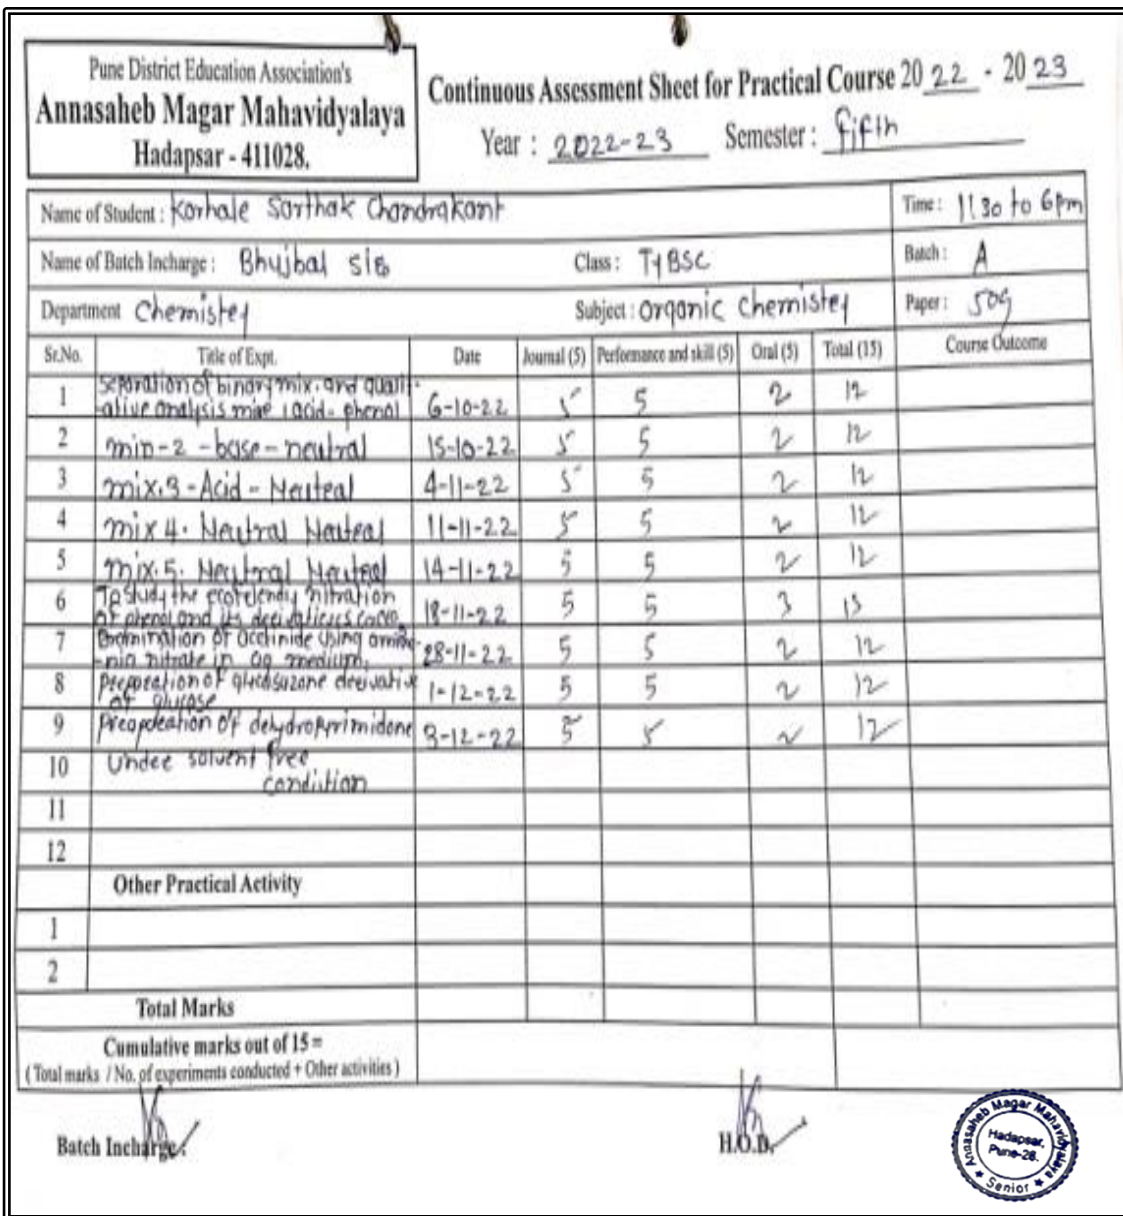 Pune District Education Association's
Annasaheb Magar Mahavidyalaya
Hadapsar - 411028.
Continuous Assessment Sheet for Practical Course 2022 - 2023
Year : 2022-23 Semester : fifth
Name of Student : Korhale Sarthak Chandrakant Time : 11 30 to 6 pm
Name of Batch Incharge : Bhujbal sir Class : TyBSC Batch : A
Department Chemistry Subject : Organic Chemistry Paper : 509
Sr.No. Title of Expt. Date Journal (5) Performance and skill (5) Oral (5) Total (15) Course Outcome
1 Separation of binary mix. and quali-
-ative analysis acid - phenol 6-10-22 5 5 2 12
2 min-2 - base - neutral 15-10-22 5 5 2 12
3 mix.3 - Acid - Neuteal 4-11-22 5 5 2 12
4 mix 4. Neutral Neuteal 11-11-22 5 5 2 12
5 mix.5. Neutral Neuteal 14-11-22 5 5 2 12
6 To study the nitration
of phenol and its 18-11-22 5 5 3 13
7 of using
nitrate in aq medium. 28-11-22 5 5 2 12
8 Preparation of derivative
of glucose 1-12-22 5 5 2 12
9 of 3-12-22 5 5 2 12
10 Under solvent free
condition
11
12
Other Practical Activity
1
2
Total Marks
Cumulative marks out of 15 =
( Total marks / No. of experiments conducted + Other activities )
Batch Incharge. H.O.D.
Annasaheb Magar Mahavidyalaya
Hadapsar,
Pune-28.
★ Senior ★